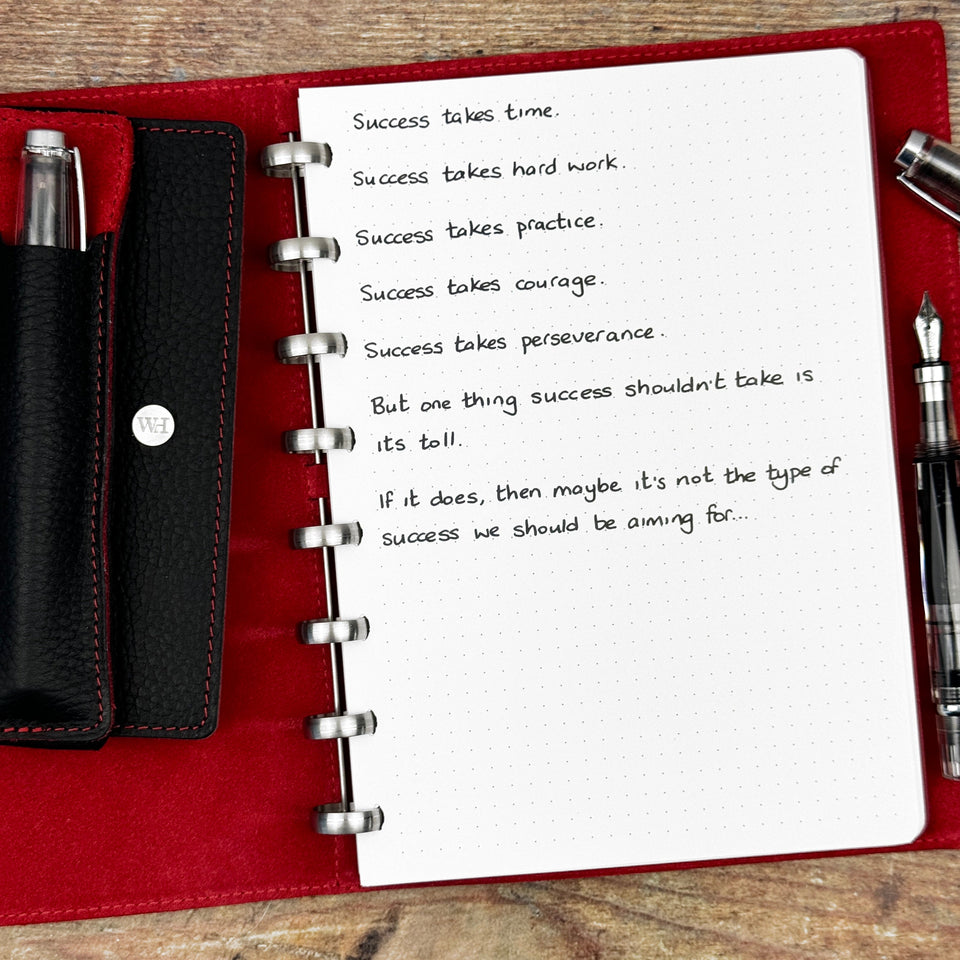 Success takes time.
Success takes hard work.
Success takes practice.
Success takes courage.
Success takes perseverance.
But one thing success shouldn't take is
its toll.
If it does, then maybe it's not the type of
success we should be aiming for...
WH